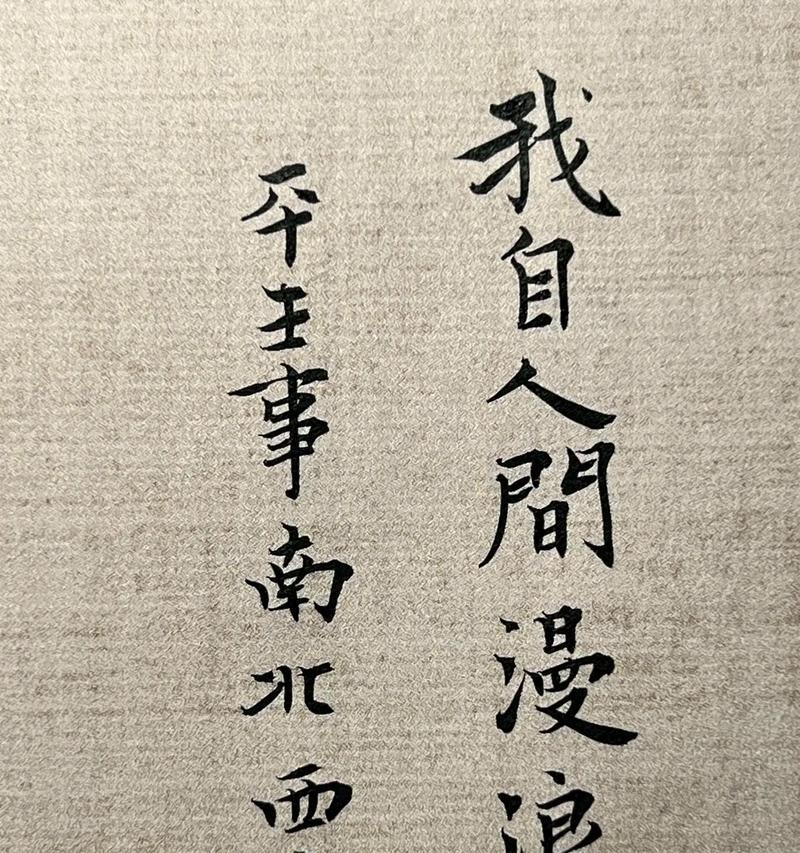 我自人間漫浪
平生事南北西